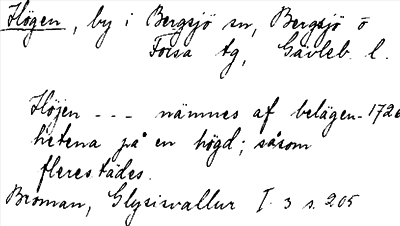 Högen, by i Bergsjö sn, Bergsjö o
Forsa tg, Gävleb. l.
Höjen --- nämnes af belägen- 1720
hetena på en högd; såsom
flerestädes.
Broman, Glysisvallur I. 3 s. 205